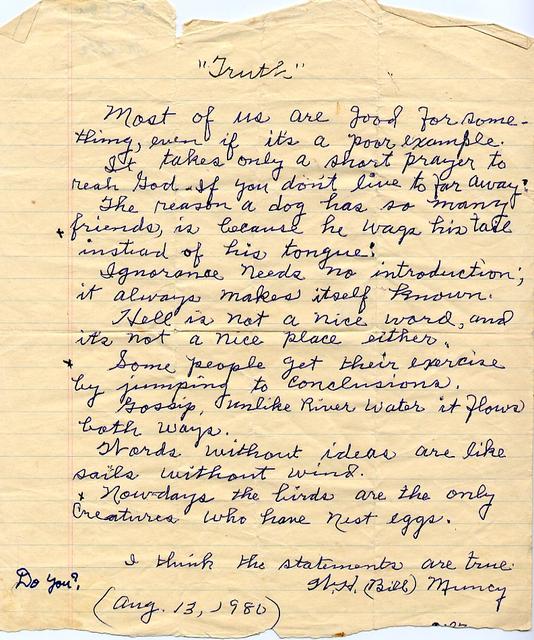 "Truth"
Most of us are good for some-
thing, even if it's a poor example.
It takes only a short prayer to
reah God. If you don't live to far away!
The reason a dog has so many
+ friends, is because he wags his tale
instead of his tongue!
Ignorance needs no introduction;
it always makes itself known.
Hell is not a nice word, and
it's not a nice place either.
+ Some people get their exercise
by jumping to conclusions.
Gossip, unlike River Water it flows
both ways.
Words without ideas are like
sails without wind.
+ Nowdays the birds are the only
Creatures who have nest eggs.
I think the statements are true.
Do You? W.H. (Bill) Muncy
(Aug. 13, 1980)